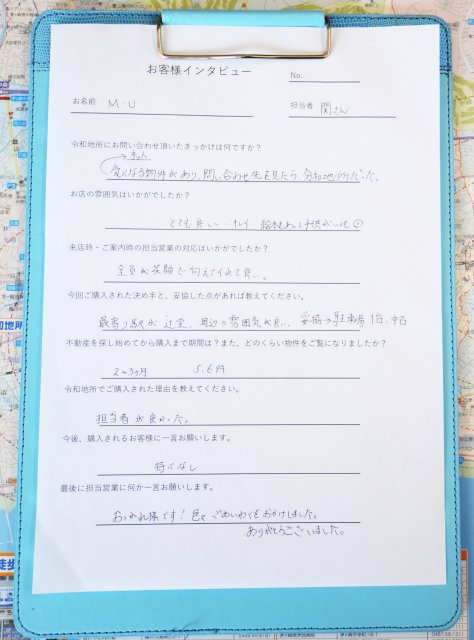 お客様インタビュー
No.
お名前 M・U
担当者 関さん
令和地所にお問い合わせ頂いたきっかけは何ですか？
ネット
気になる物件があり、問い合わせ先を見たら、令和地所だった。
お店の雰囲気はいかがでしたか？
とても良い・キレイ 絵本もあって子供がいても◎
来店時・ご案内時の担当営業の対応はいかがでしたか？
全員が笑顔で迎えてくれて良い。
今回ご購入された決め手と、妥協した点があれば教えてください。
最寄り駅が辻堂、周辺の雰囲気が良い。 妥協→駐車場1台、中古
不動産を探し始めてから購入まで期間は？また、どのくらい物件をご覧になりましたか？
2～3ヶ月 5.6件
令和地所でご購入された理由を教えてください。
担当者が良かった。
今後、購入されるお客様に一言お願いします。
特になし
最後に担当営業に何か一言お願いします。
おつかれ様です！色々ごめいわくをおかけしました。
ありがとうございました。